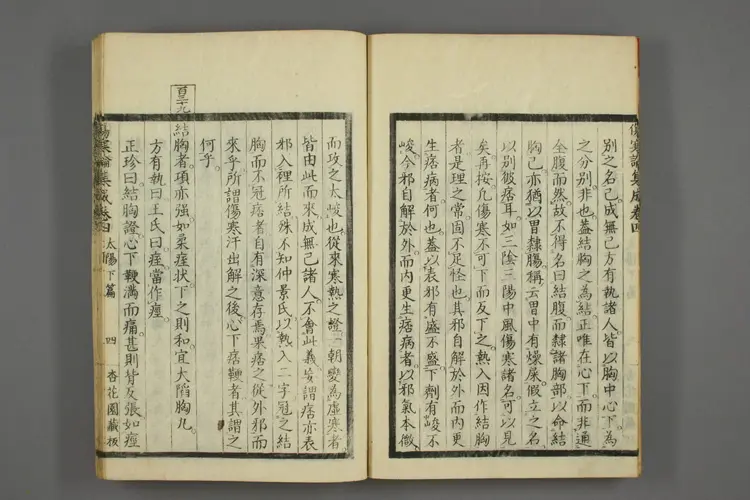 傷寒論集成卷四
別之名已成無己方有執諸人皆以胸中心下為
之分別非也蓋結胸之為結正唯在心下而非通
全腹而然故不得名曰結腹而隸諸胸部以命結
胸已亦猶以胃隸腸稱云胃中有燥屎假立之名
以別彼痞耳如三陰三陽中風傷寒諸名可以見
矣再按凡傷寒不可下而反下之熱入因作結胸
者是理之常固不足怪也其邪自解於外而內更
生痞病者何也蓋以表邪有盛不盛下劑有峻不
峻今邪自解於外而內更生痞病者以邪氣本微
而攻之太峻也從來寒熱之證一朝變為虛寒者
皆由此而來成無己諸人不會此義妄謂痞亦表
邪入裡所結殊不知仲景氏以熱入二字冠之結
胸而不冠痞者自有深意存焉果痞之從外邪而
來乎所謂傷寒汗出解之後心下痞鞕者其謂之
何乎
百三十九
結胸者項亦强如柔痙狀下之則和宜大陷胸丸
方有執曰王氏曰痙當作痓
正珍曰結胸證心下鞕滿而痛甚則背反張如痙
傷寒論集成卷四 太陽下篇 四 杏花園藏板